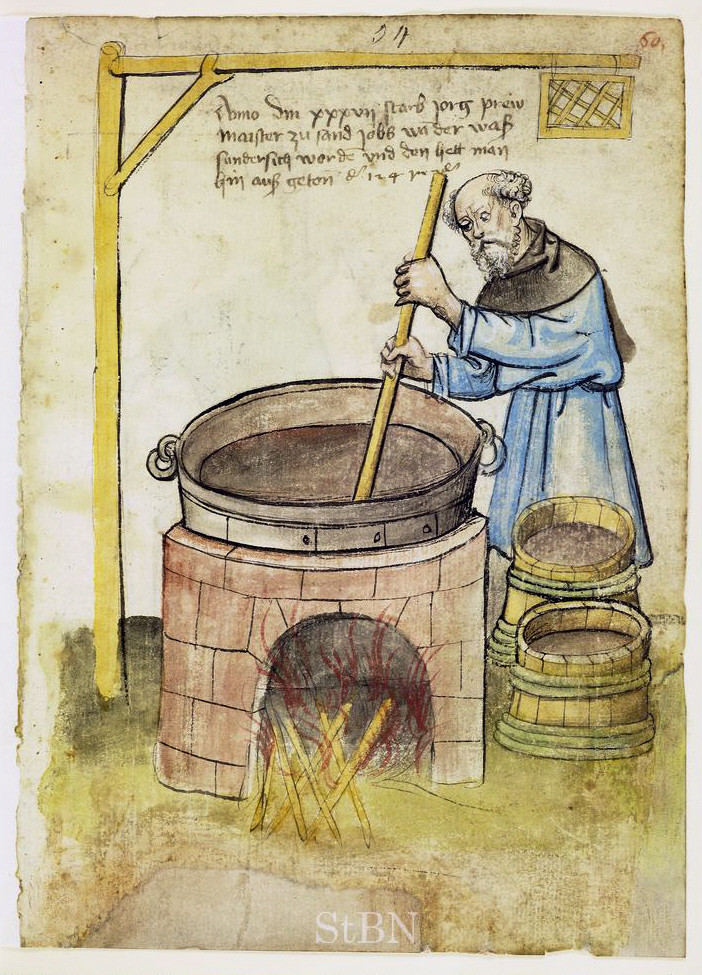 34
60.
Anno dm xxxvii starb jorg prew
maister zu sand jobs wa der was
sundersich worde vnd den hett man
hin auss geton
StBN